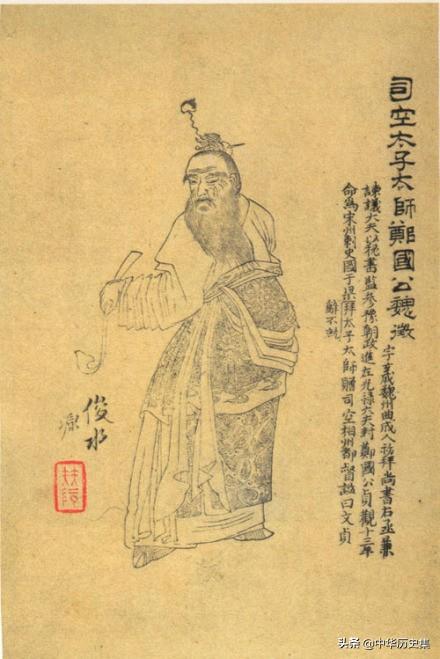 司空太子太師鄭國公魏徵
字玄成魏州曲成人拜尚書右丞兼
諫議大夫以秘書監參豫朝政進左光祿大夫封鄭國公貞觀十三年
命為宋州刺史國子拜太子太師贈司空相州都督謚曰文貞
辭不就
俊水
源
头条 @中华历史集